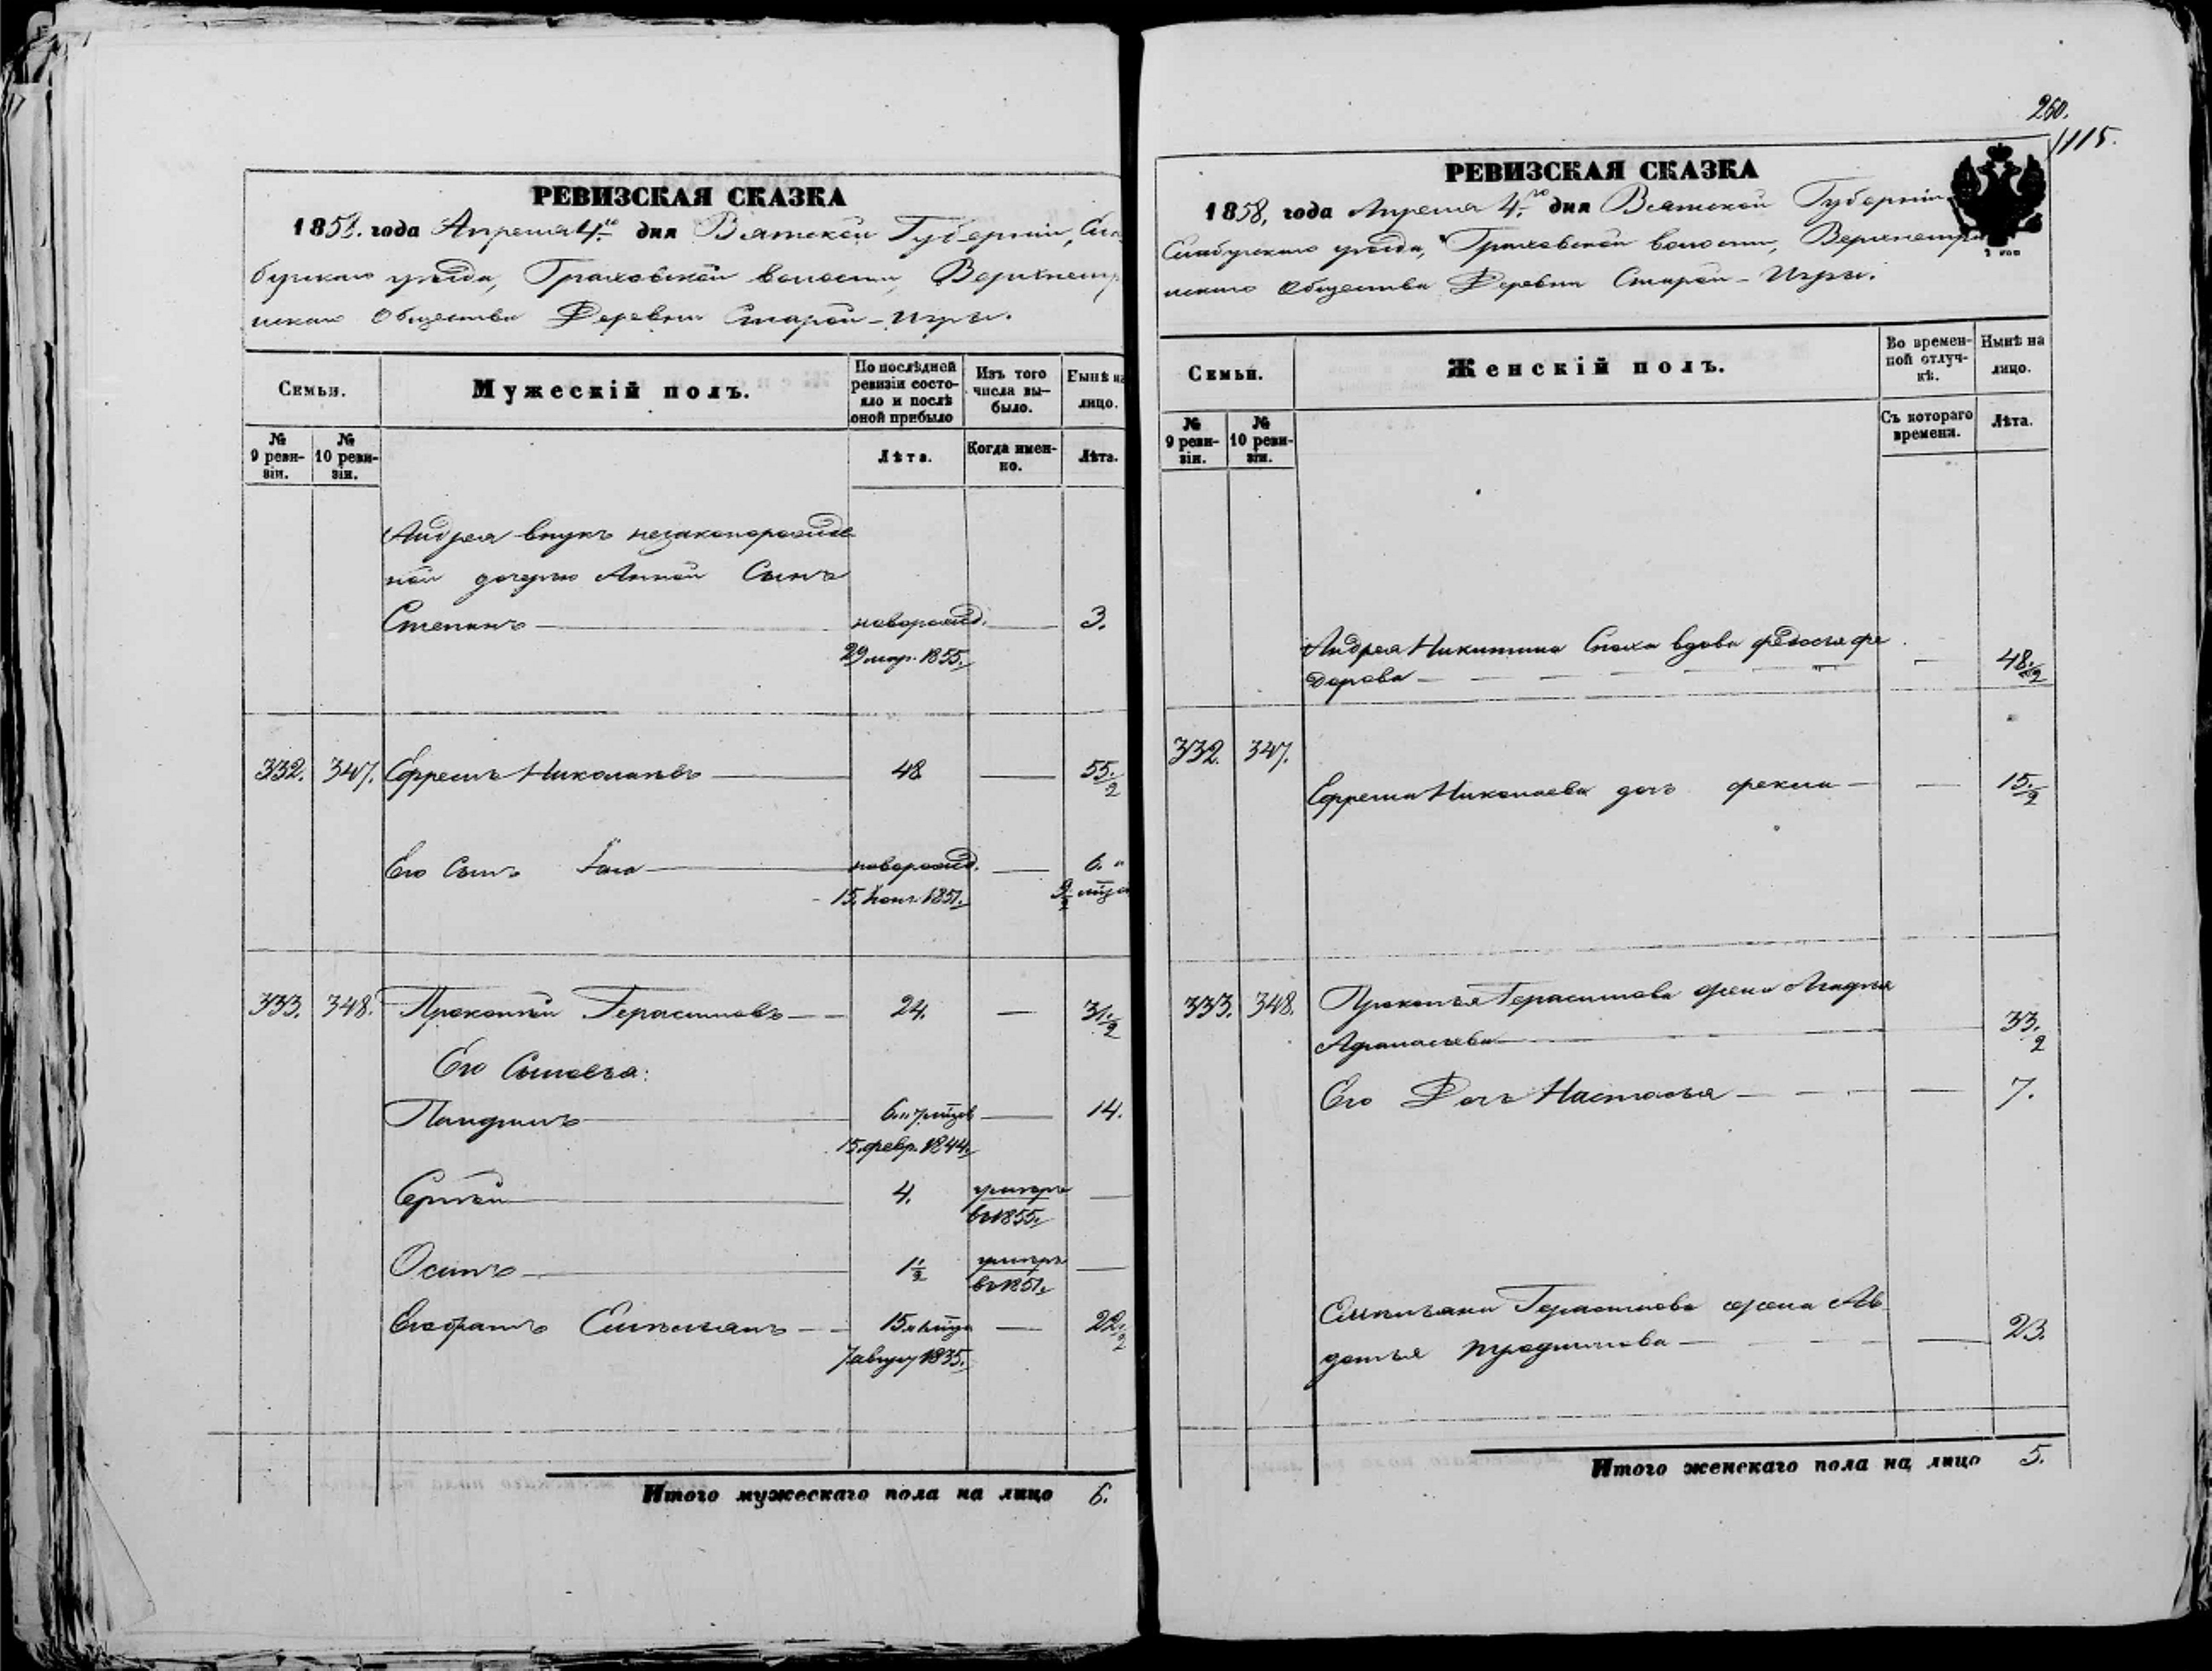 РЕВИЗСКАЯ СКАЗКА
1858. года Апреля 4го дня Вятской Губерніи, Ела
бужскаго уѣзда, Граховской волости,
Общества Деревни Старой-Игры.
Семьи.
Мужескій полъ.
По послѣдней ревизіи состояло и послѣ оной прибыло
Изъ того числа выбыло.
Нынѣ на лицо.
№ 9 ревизіи.
№ 10 ревизіи.
Лѣта.
Когда именно.
Лѣта.
Андрея внукъ незаконорожде
ной дочерью Анной Сынъ
Степанъ — новорожд. — 3.
29 мар. 1855.
332. 347. Ефремъ Николаевъ — 48 — 55 1/2
Его Сынъ — новорожд. — 6. "
15. 1851.
333. 348. Прокопій Герасимовъ — 24. — 31 1/2
Его Сыновья:
6. " 7 мѣсцов — 14.
15 февр. 1844.
Сергѣй — 4. умеръ —
въ 1855.
Осипъ — 1 1/2 умеръ —
въ 1851.
Его братъ Емельянъ — 15 — 22 1/2
7 август 1835.
Итого мужескаго пола на лицо 6.
260.
1115.
РЕВИЗСКАЯ СКАЗКА
1858, года Апреля 4.го дня Вятской Губерніи
Елабужскаго уѣзда, Граховской волости,
Общества Деревни Старой-Игры.
Семьи.
Женскій полъ.
Во временной отлучкѣ.
Нынѣ на лицо.
№ 9 ревизіи.
№ 10 ревизіи.
Съ котораго времени.
Лѣта.
Андрея Никитина Сноха вдова Федосья Фе
дорова — — 48. 1/2
332. 347.
Ефрема Николаева дочь Фекла — — 15. 1/2
333. 348. Прокопья Герасимова жена
Афанасьева — 33. 1/2
Его Дочь Настасья — — 7.
Емельяна Герасимова жена Ав
дотья — — 23.
Итого женскаго пола на лицо 5.